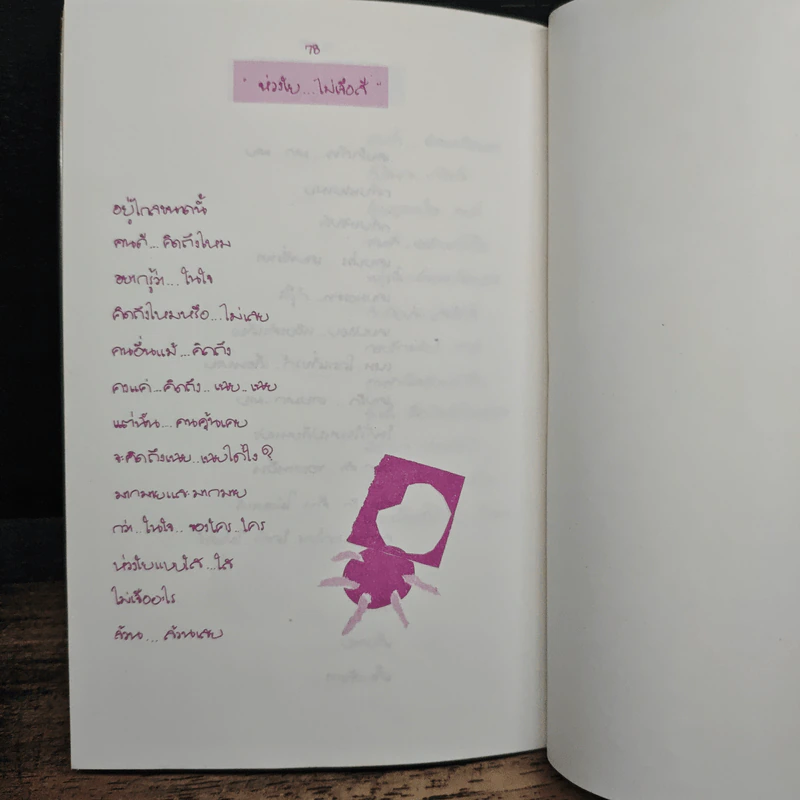 78
" ห่วงใย...ไม่เจือสี "
อยู่ไกลขนาดนี้
คนดี...คิดถึงไหม
อยากรู้ว่า...ในใจ
คิดถึงไหมหรือ...ไม่เลย
คนอื่นแม้...คิดถึง
คงแค่...คิดถึง..เฉย..เฉย
แต่นั้น...คนคุ้นเคย
จะคิดถึงเฉย..เฉยได้ไง?
มากมายและมากมาย
กว่า..ในใจ..ของใคร..ใคร
ห่วงใยแบบใส...ใส
ไม่เจืออะไร
ล้วน...ล้วนเลย